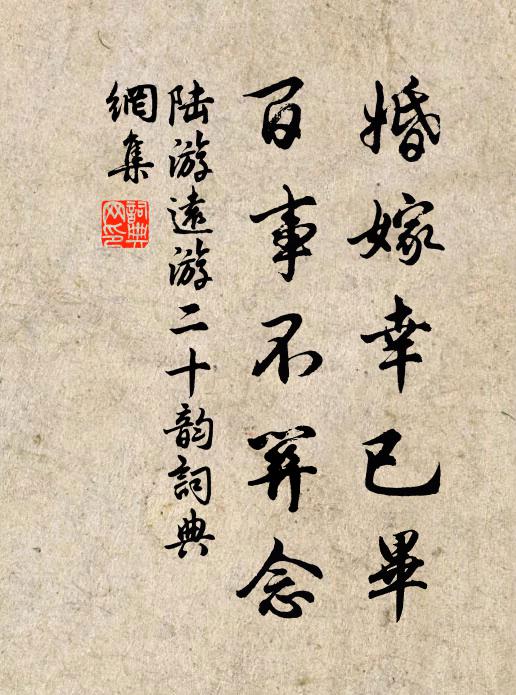 婚嫁幸已畢
百事不筭念
陆游遠游二十韵詞典
網集
詞典
网印